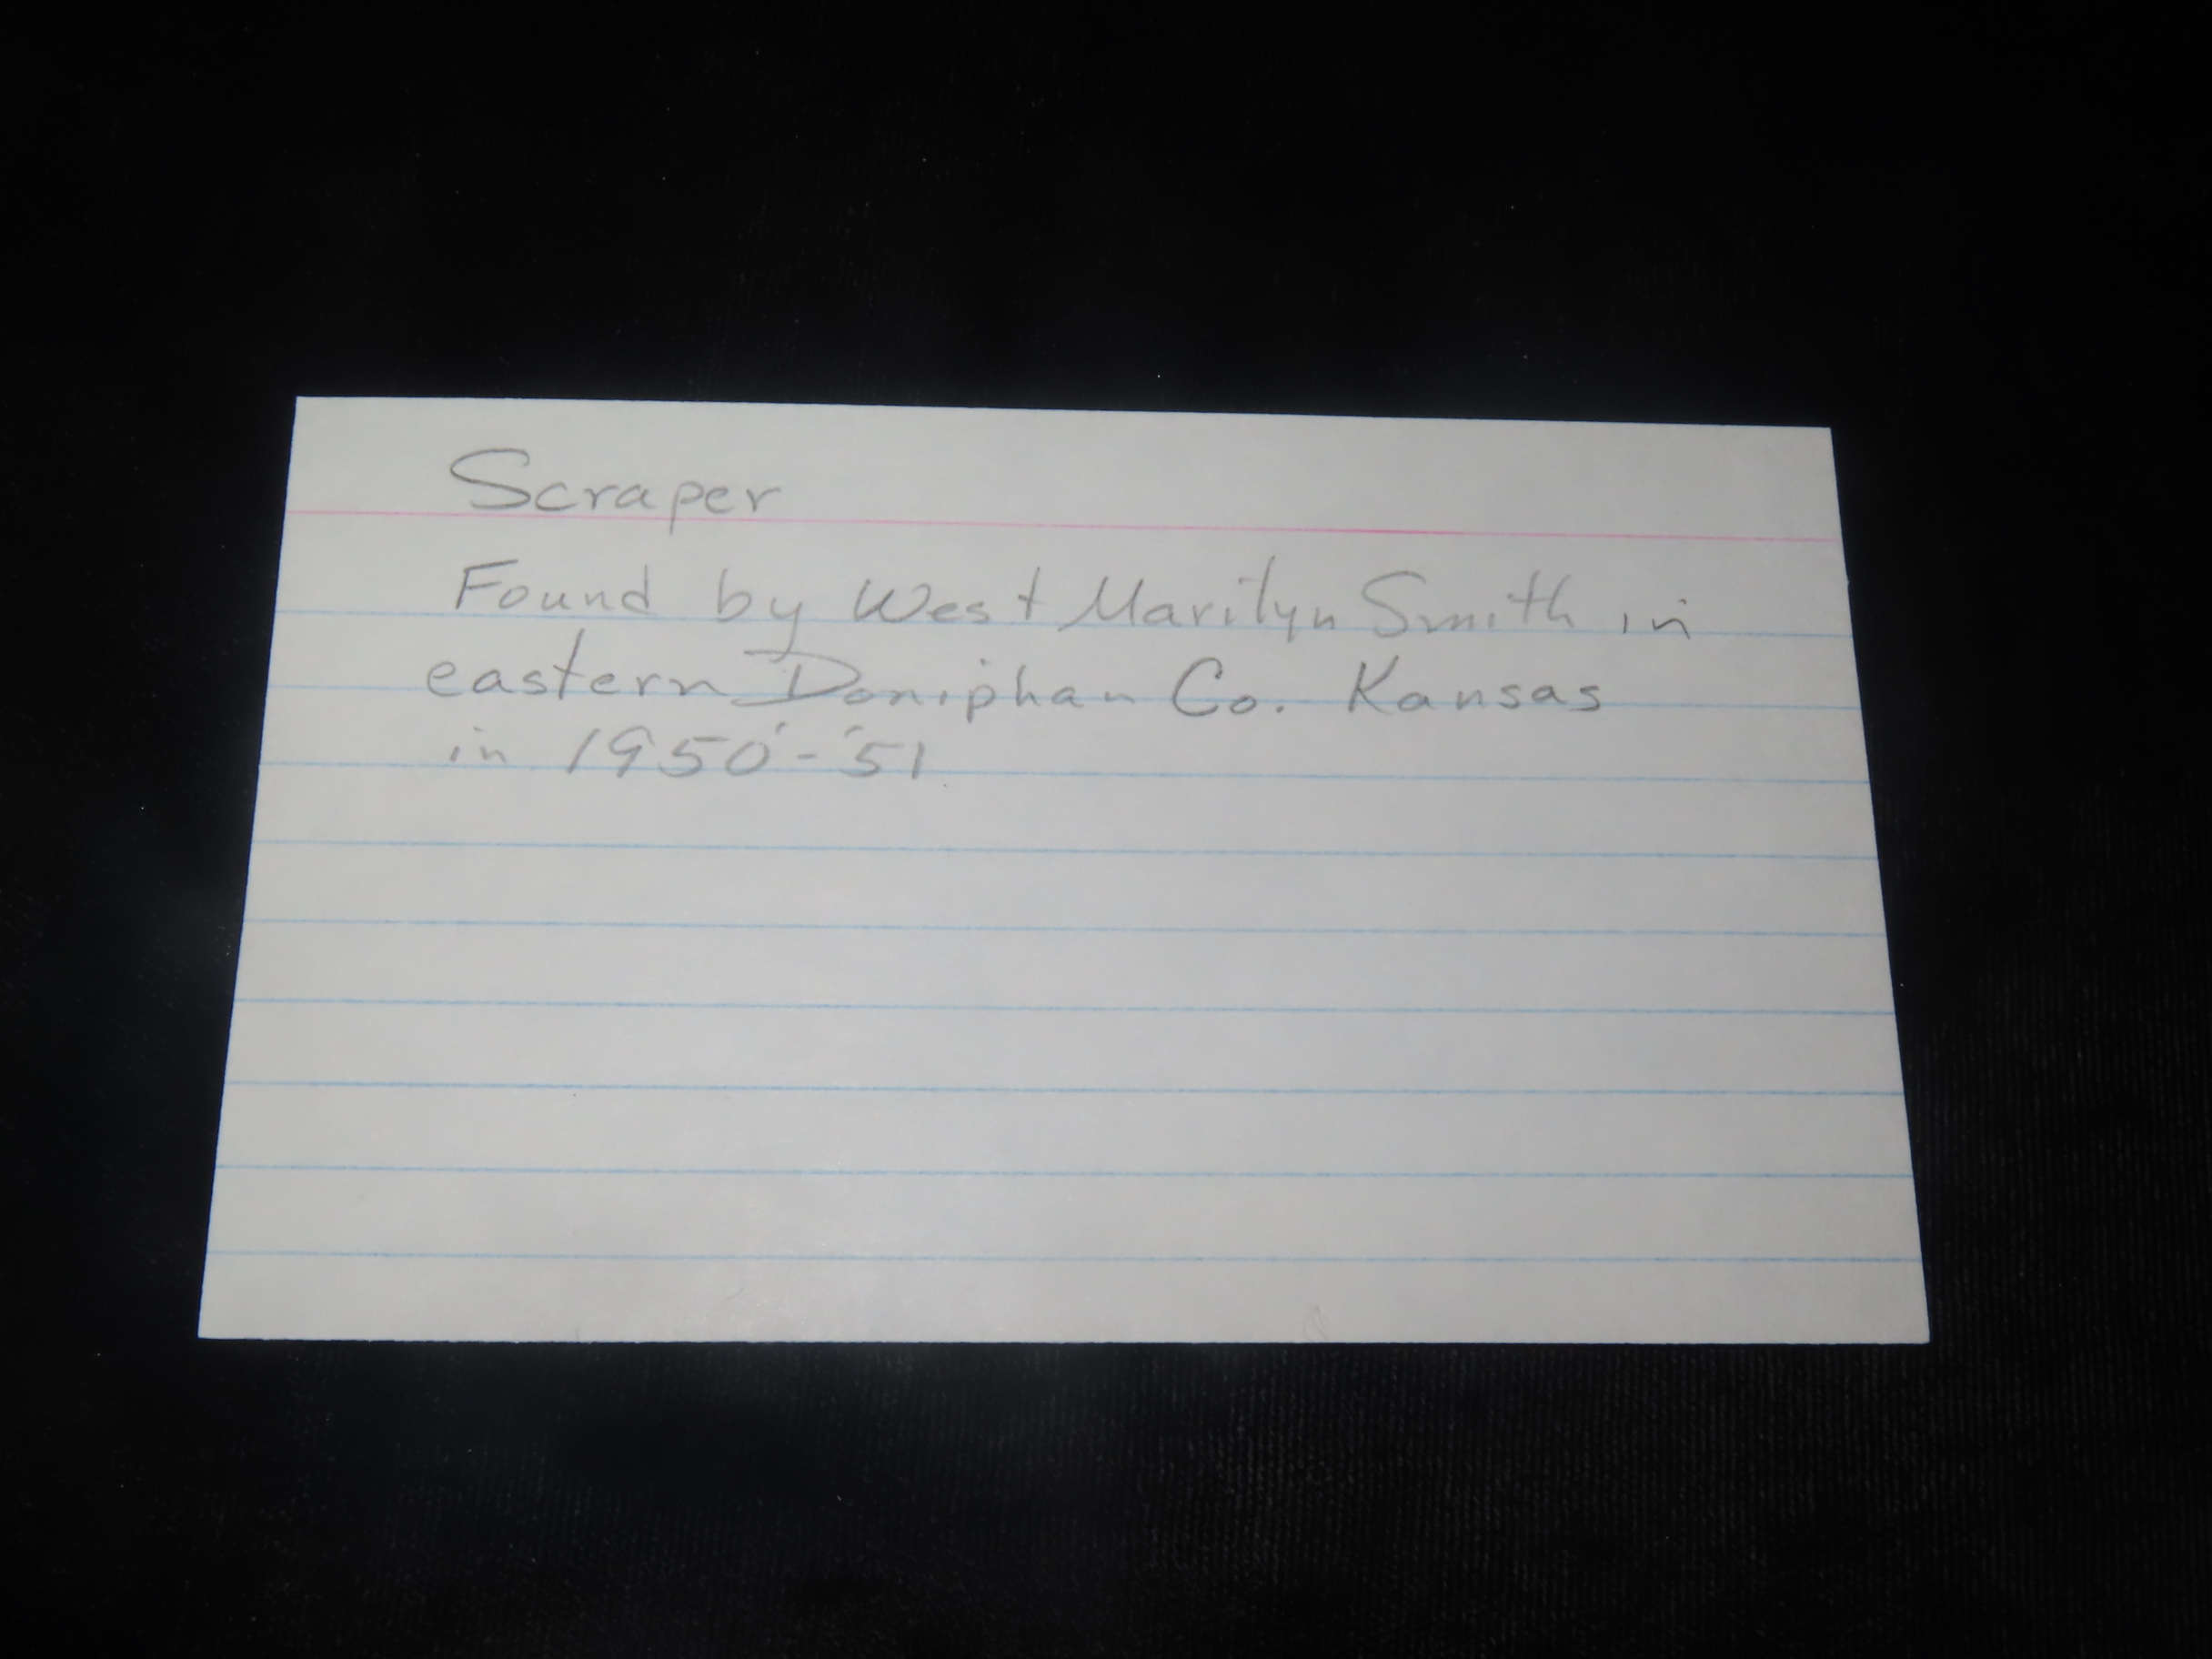 Scraper
Found by Wes + Marilyn Smith in
eastern Doniphan Co. Kansas
in 1950'-'51